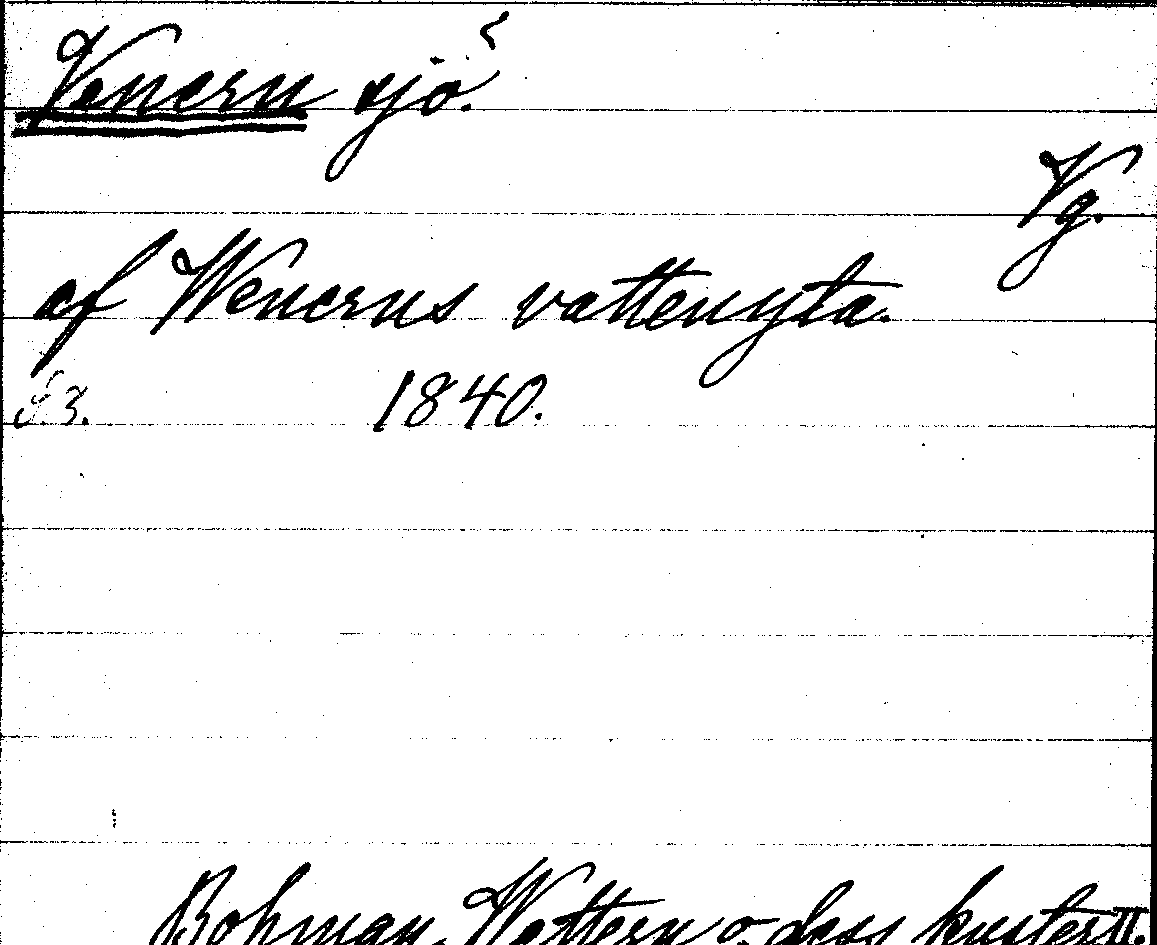 Venern sjö.
Vg.
af Wenerns vattenyta.
S. 3. 1840.
Bohman, Wettern o. dess kuster II.